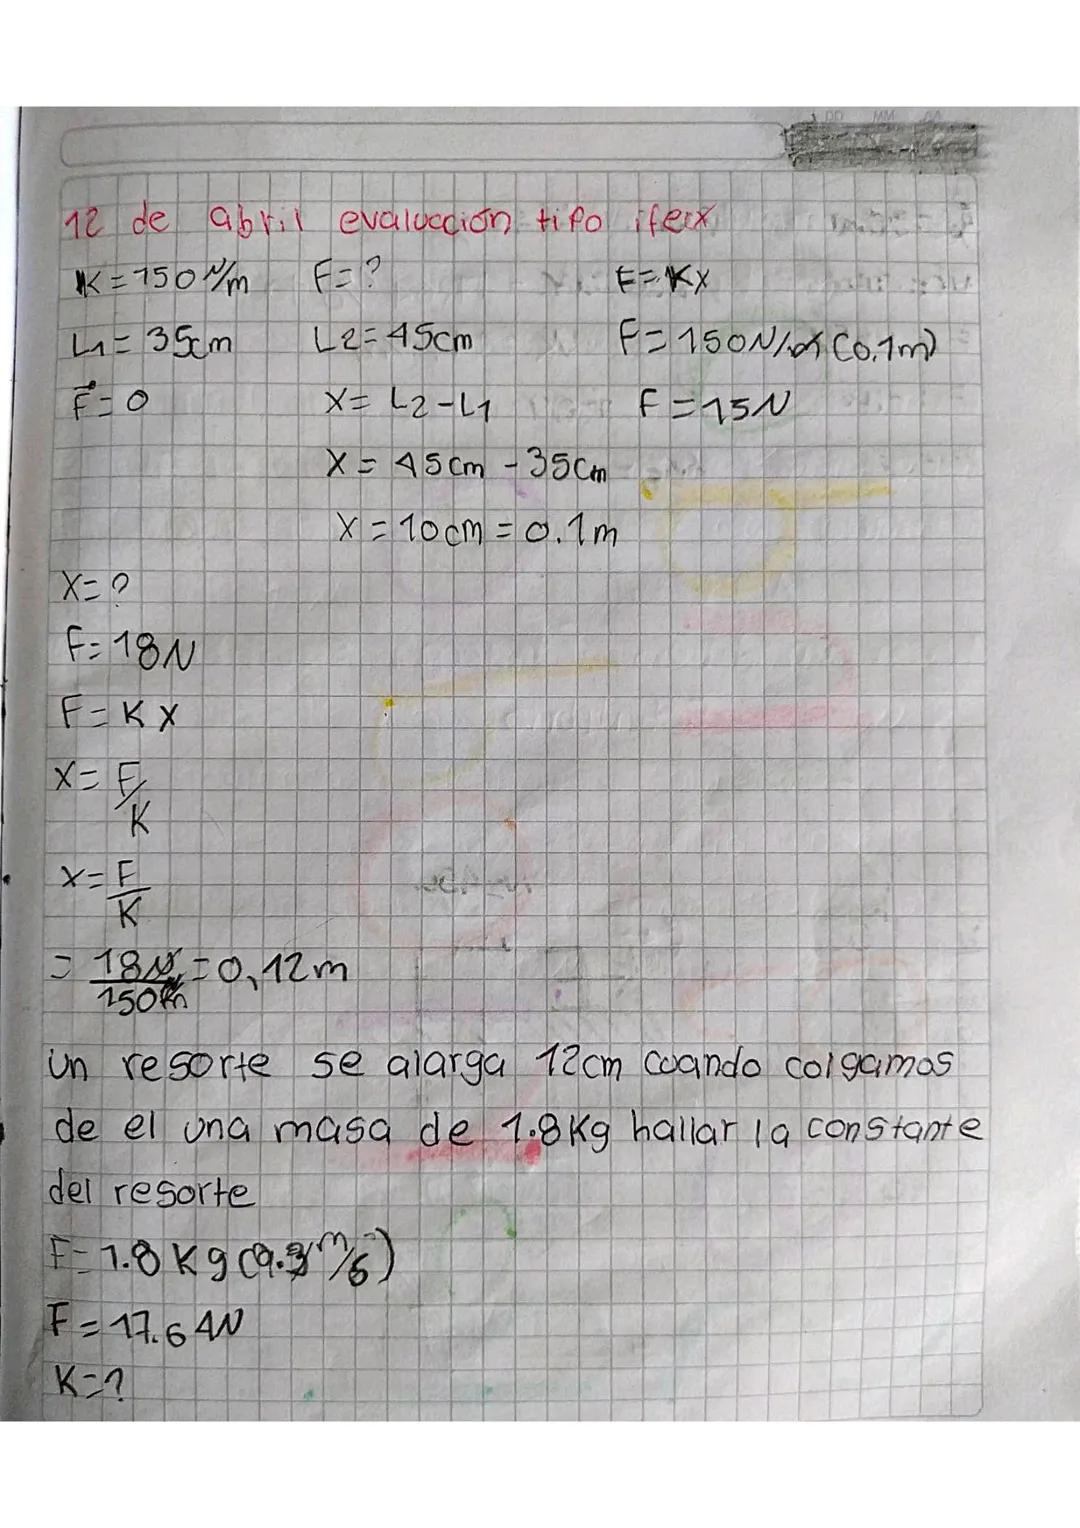 12 de abril evaluacion tipo ifex
K=150 N/m F=? F=KX
L1= 35cm L2=45cm F=150N/m (0.1m)
F=0 X= L2-L1 F=15N
X= 45cm - 35cm
X=10cm=0.1m
X=?
F=18N
F=KX
X= F/K
X= F/K
= 18N/150N/m =0,12m
un resorte se alarga 12cm cuando colgamos
de el una masa de 1.8Kg hallar la constante
del resorte
F=1.8 Kg (9.8 m/s)
F=17.64N
K=?